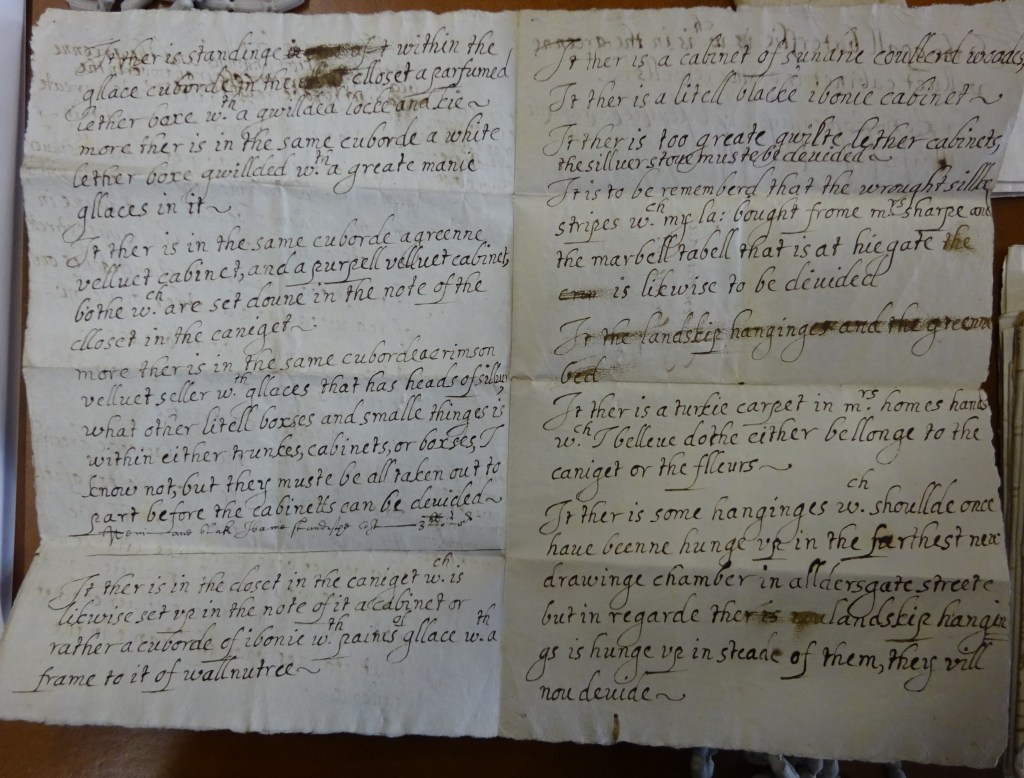 It ther is standinge within the
gllace cuborde in the clloset a parfumed
lether boxe w.th a gwillded locke and kie~
more ther is in the same cuborde a white
lether boxe gwillded w.th a greate manie
gllaces in it~
It ther is in the same cuborde a greenne
velluet cabinet, and a purpell velluet cabinet,
bothe w.ch are set doune in the note of the
clloset in the caniget~
more ther is in the same cuborde a crimson
velluet seller w.th gllaces that has heads of silluer,
what other litell boxses and smalle thinges is
within either trunkes, cabinets, or boxses, I
know not, but they muste be all taken out to
part before the cabinetts can be deuided~
It ther is in the closet in the caniget w.ch is
likwise set vp in the note of it a cabinet or
rather a cuborde of ibonie w.th paines of gllace w.th a
frame to it of wallnutree~
It ther is a cabinet of sundrie coullerd woodes,
It ther is a litell blacke ibonie cabinet~
It ther is too greate gwilte lether cabinets,
the silluer stoof muste be deuided~
It is to be rememberd that the wrought sillke
stripes w.ch my la: bought frome m.rs sharpe and
the marbell tabell that is at hiegate the
is likwise to be deuided
It the landskip hanginges and the greenne
bed
It ther is a turkie carpet in m.rs homes hands
w.ch I belleue dothe either bellonge to the
caniget or the flleurs~
It ther is some hanginges w.ch shoullde once
haue beenne hunge vp in the farthest new
drawinge chamber in alldersgate streete
but in regarde ther is landskip hangin
gs is hunge vp in steade of them, they will
nou deuide~